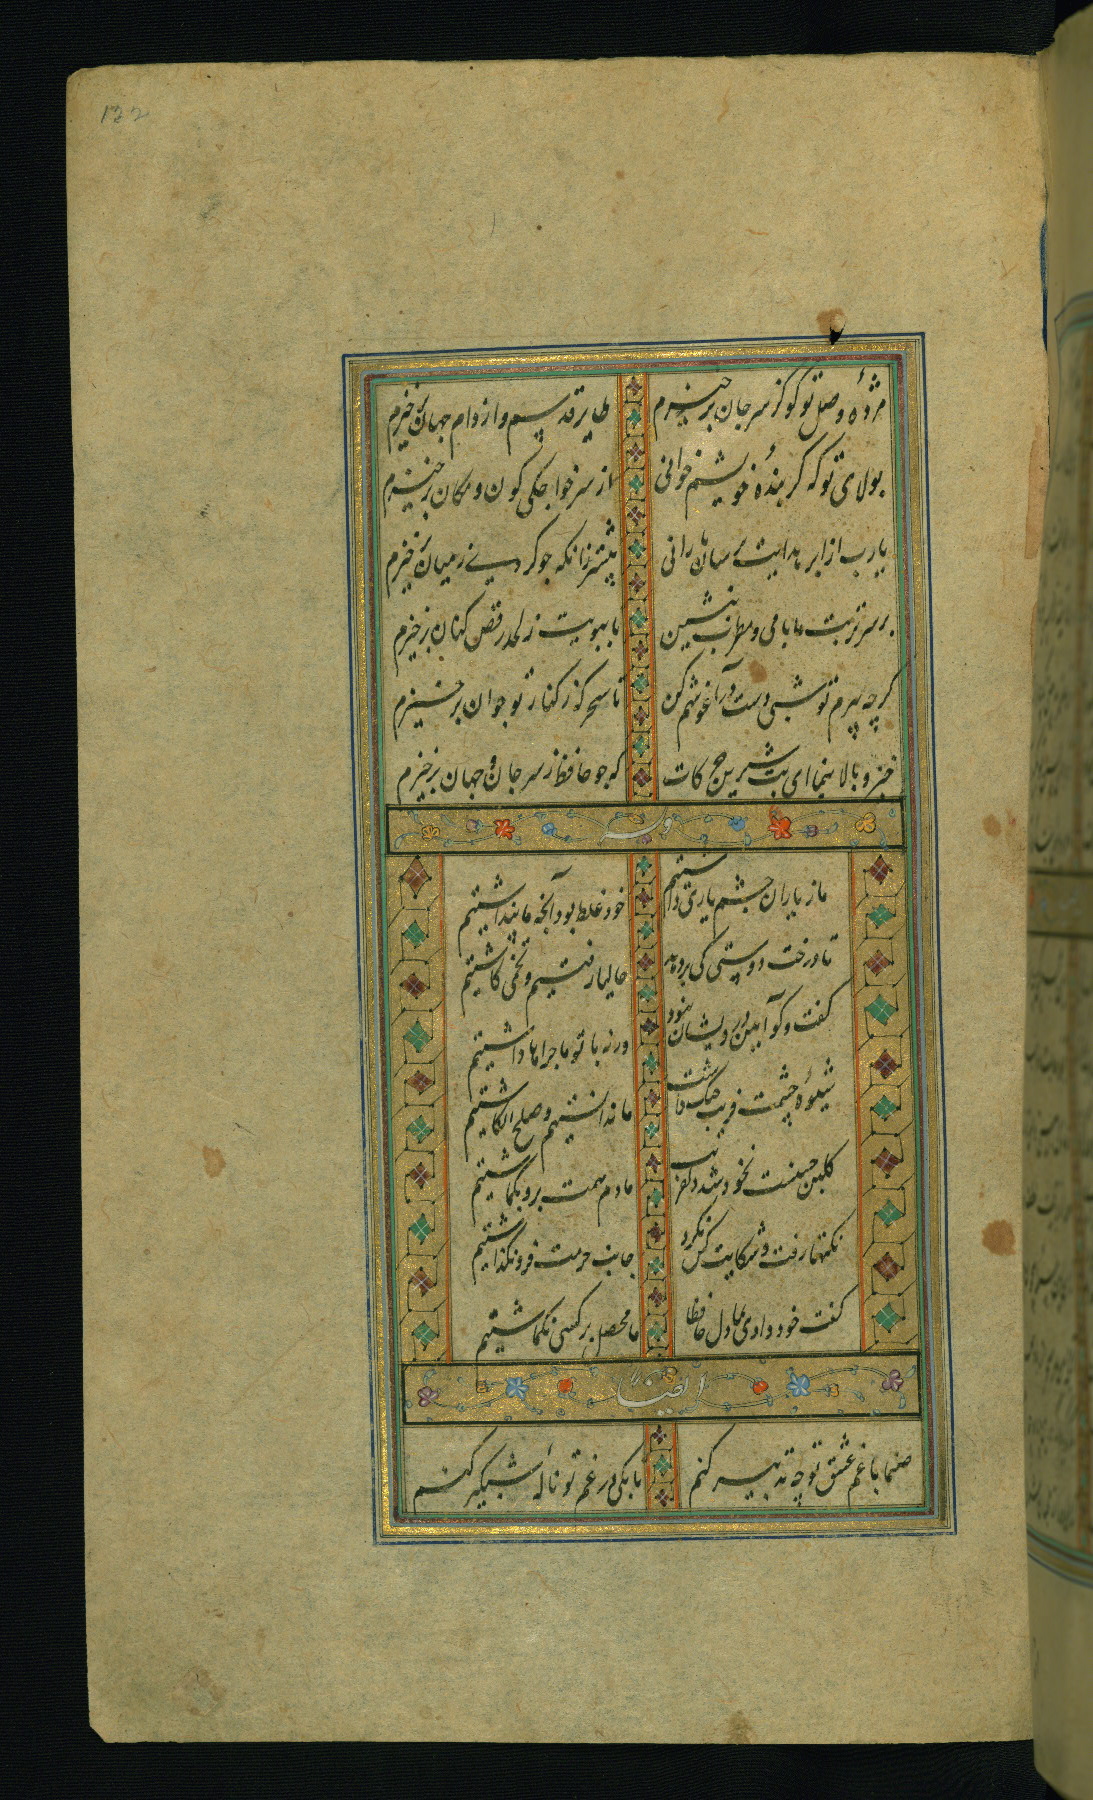 132
مژدهٔ وصل تو کو کز سر جان برخیزم
طایر قدسم و از دام جهان برخیزم
بولای تو که گر بندهٔ خویشم خوانی
از سر خواجگی کون و مکان برخیزم
یارب از ابر هدایت برسان بارانی
پیشتر زانکه چو گردی ز میان برخیزم
بر سر تربت ما با می و مطرب بنشین
تا ببویت ز لحد رقص کنان برخیزم
گرچه پیرم تو شبی دست در آغوشم کن
تا سحرگه ز کنار تو جوان برخیزم
خیز و بالا بنما ای بت شیرین حرکات
که چو حافظ ز سر جان و جهان برخیزم
وله
ما ز یاران چشم یاری داشتیم
خود غلط بود آنچه ما پنداشتیم
تا درخت دوستی کی بر دهد
حالیا رفتیم و تخمی کاشتیم
گفت و گو آیین درویشان نبود
ورنه با تو ماجراها داشتیم
شیوهٔ چشمت فریب جنگ داشت
ما ندانستیم و صلح انگاشتیم
گلبن حسنت نخود شد دلفریب
ما دم همت برو بگماشتیم
نکتها رفت و شکایت کس نکرد
جانب حرمت فرو نگذاشتیم
گفت خود دادی بما دل حافظا
ما محصل بر کسی نگماشتیم
ایضا
صنما با غم عشق تو چه تدبیر کنم
تا بکی در غم تو نالهٔ شبگیر کنم